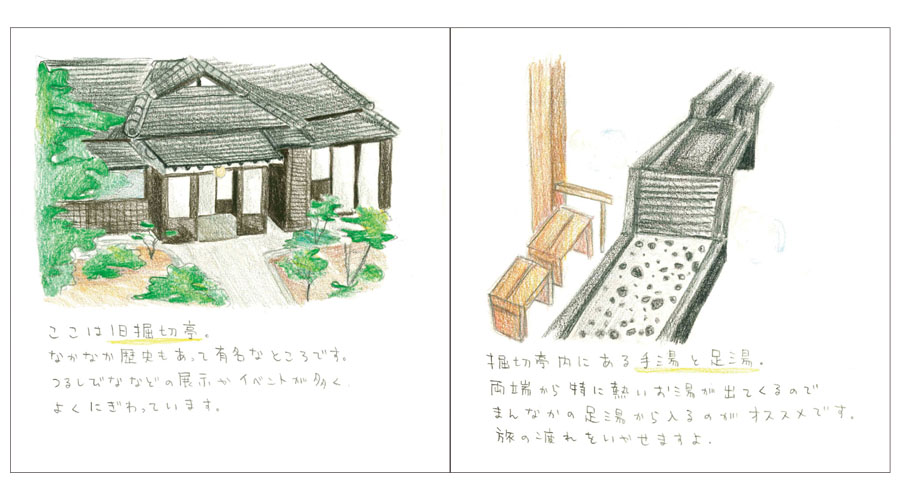 ここは旧掘切亭。
なかなか歴史もあって有名なところです。
つるしびななどの展示やイベントが多く、
よくにぎわっています。
掘切亭内にある手湯と足湯。
両端から特に熱いお湯が出てくるので
まんなかの足湯から入るのがオススメです。
旅の疲れをいやせますよ。